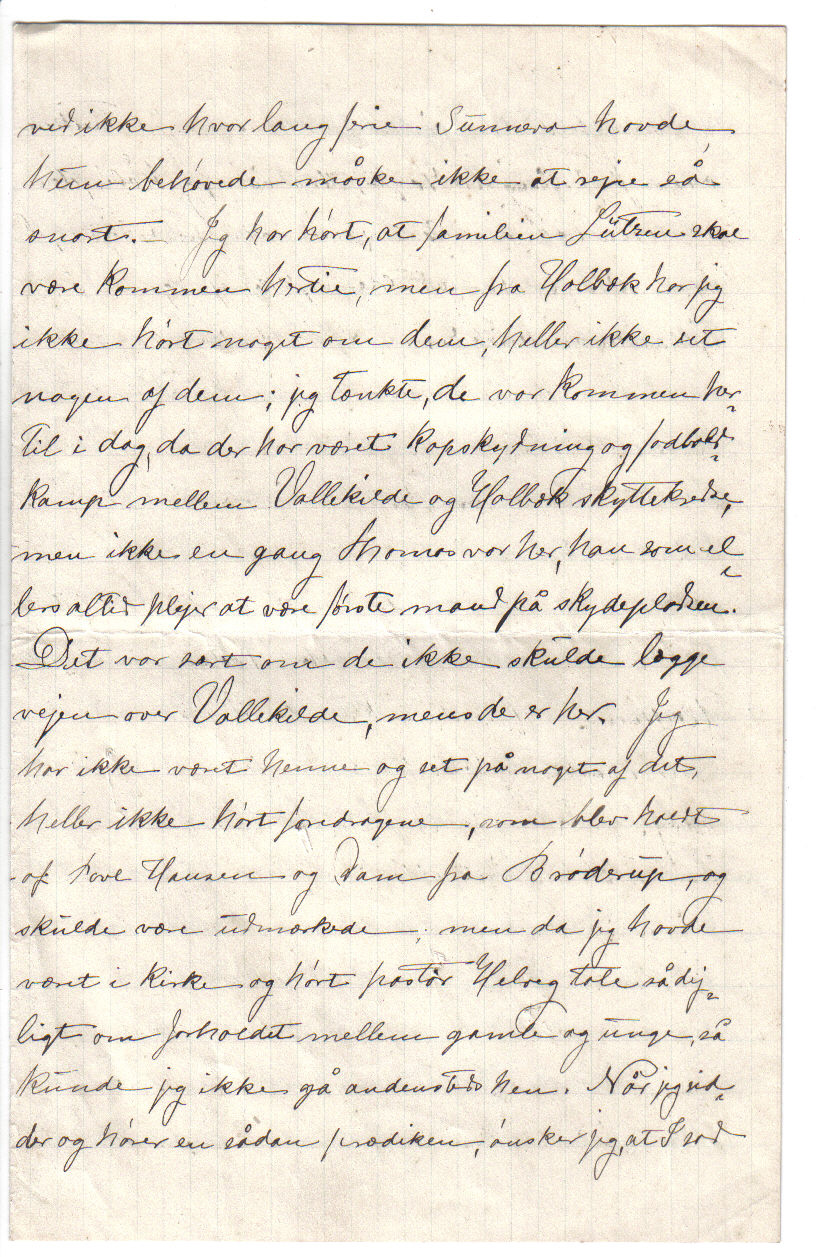 ved ikke hvor lang ferie Sunneva havde,
hun behøvede måske ikke at rejse så
snart. – Jeg har hørt, at familien Lützen skal
være kommen hertil, men fra Holbæk har jeg
ikke hørt noget om dem, heller ikke set
nogen af dem; jeg tænkte, de var kommen her-
til i dag, da der har været kapskydning og fodbold-
kamp mellem Vallekilde og Holbæk skyttekredse,
men ikke en gang Thomas var her, han som el-
lers altid plejer at være første mand på skydepladsen.
Det var sært om de ikke skulde lægge
vejen over Vallekilde, mens de er her. Jeg
har ikke været henne og set på noget af det,
heller ikke hørt foredragene, som blev holdt
af Povl Hansen og Dam fra Brøderup, og
skulde være udmærkede, men da jeg havde
været i kirke og hørt pastor Helveg tale så dej-
ligt om forholdet mellem gamle og unge, så
kunde jeg ikke gå andensteds hen. Når jeg sid-
der og hører en sådan prædiken, ønsker jeg, at I sad